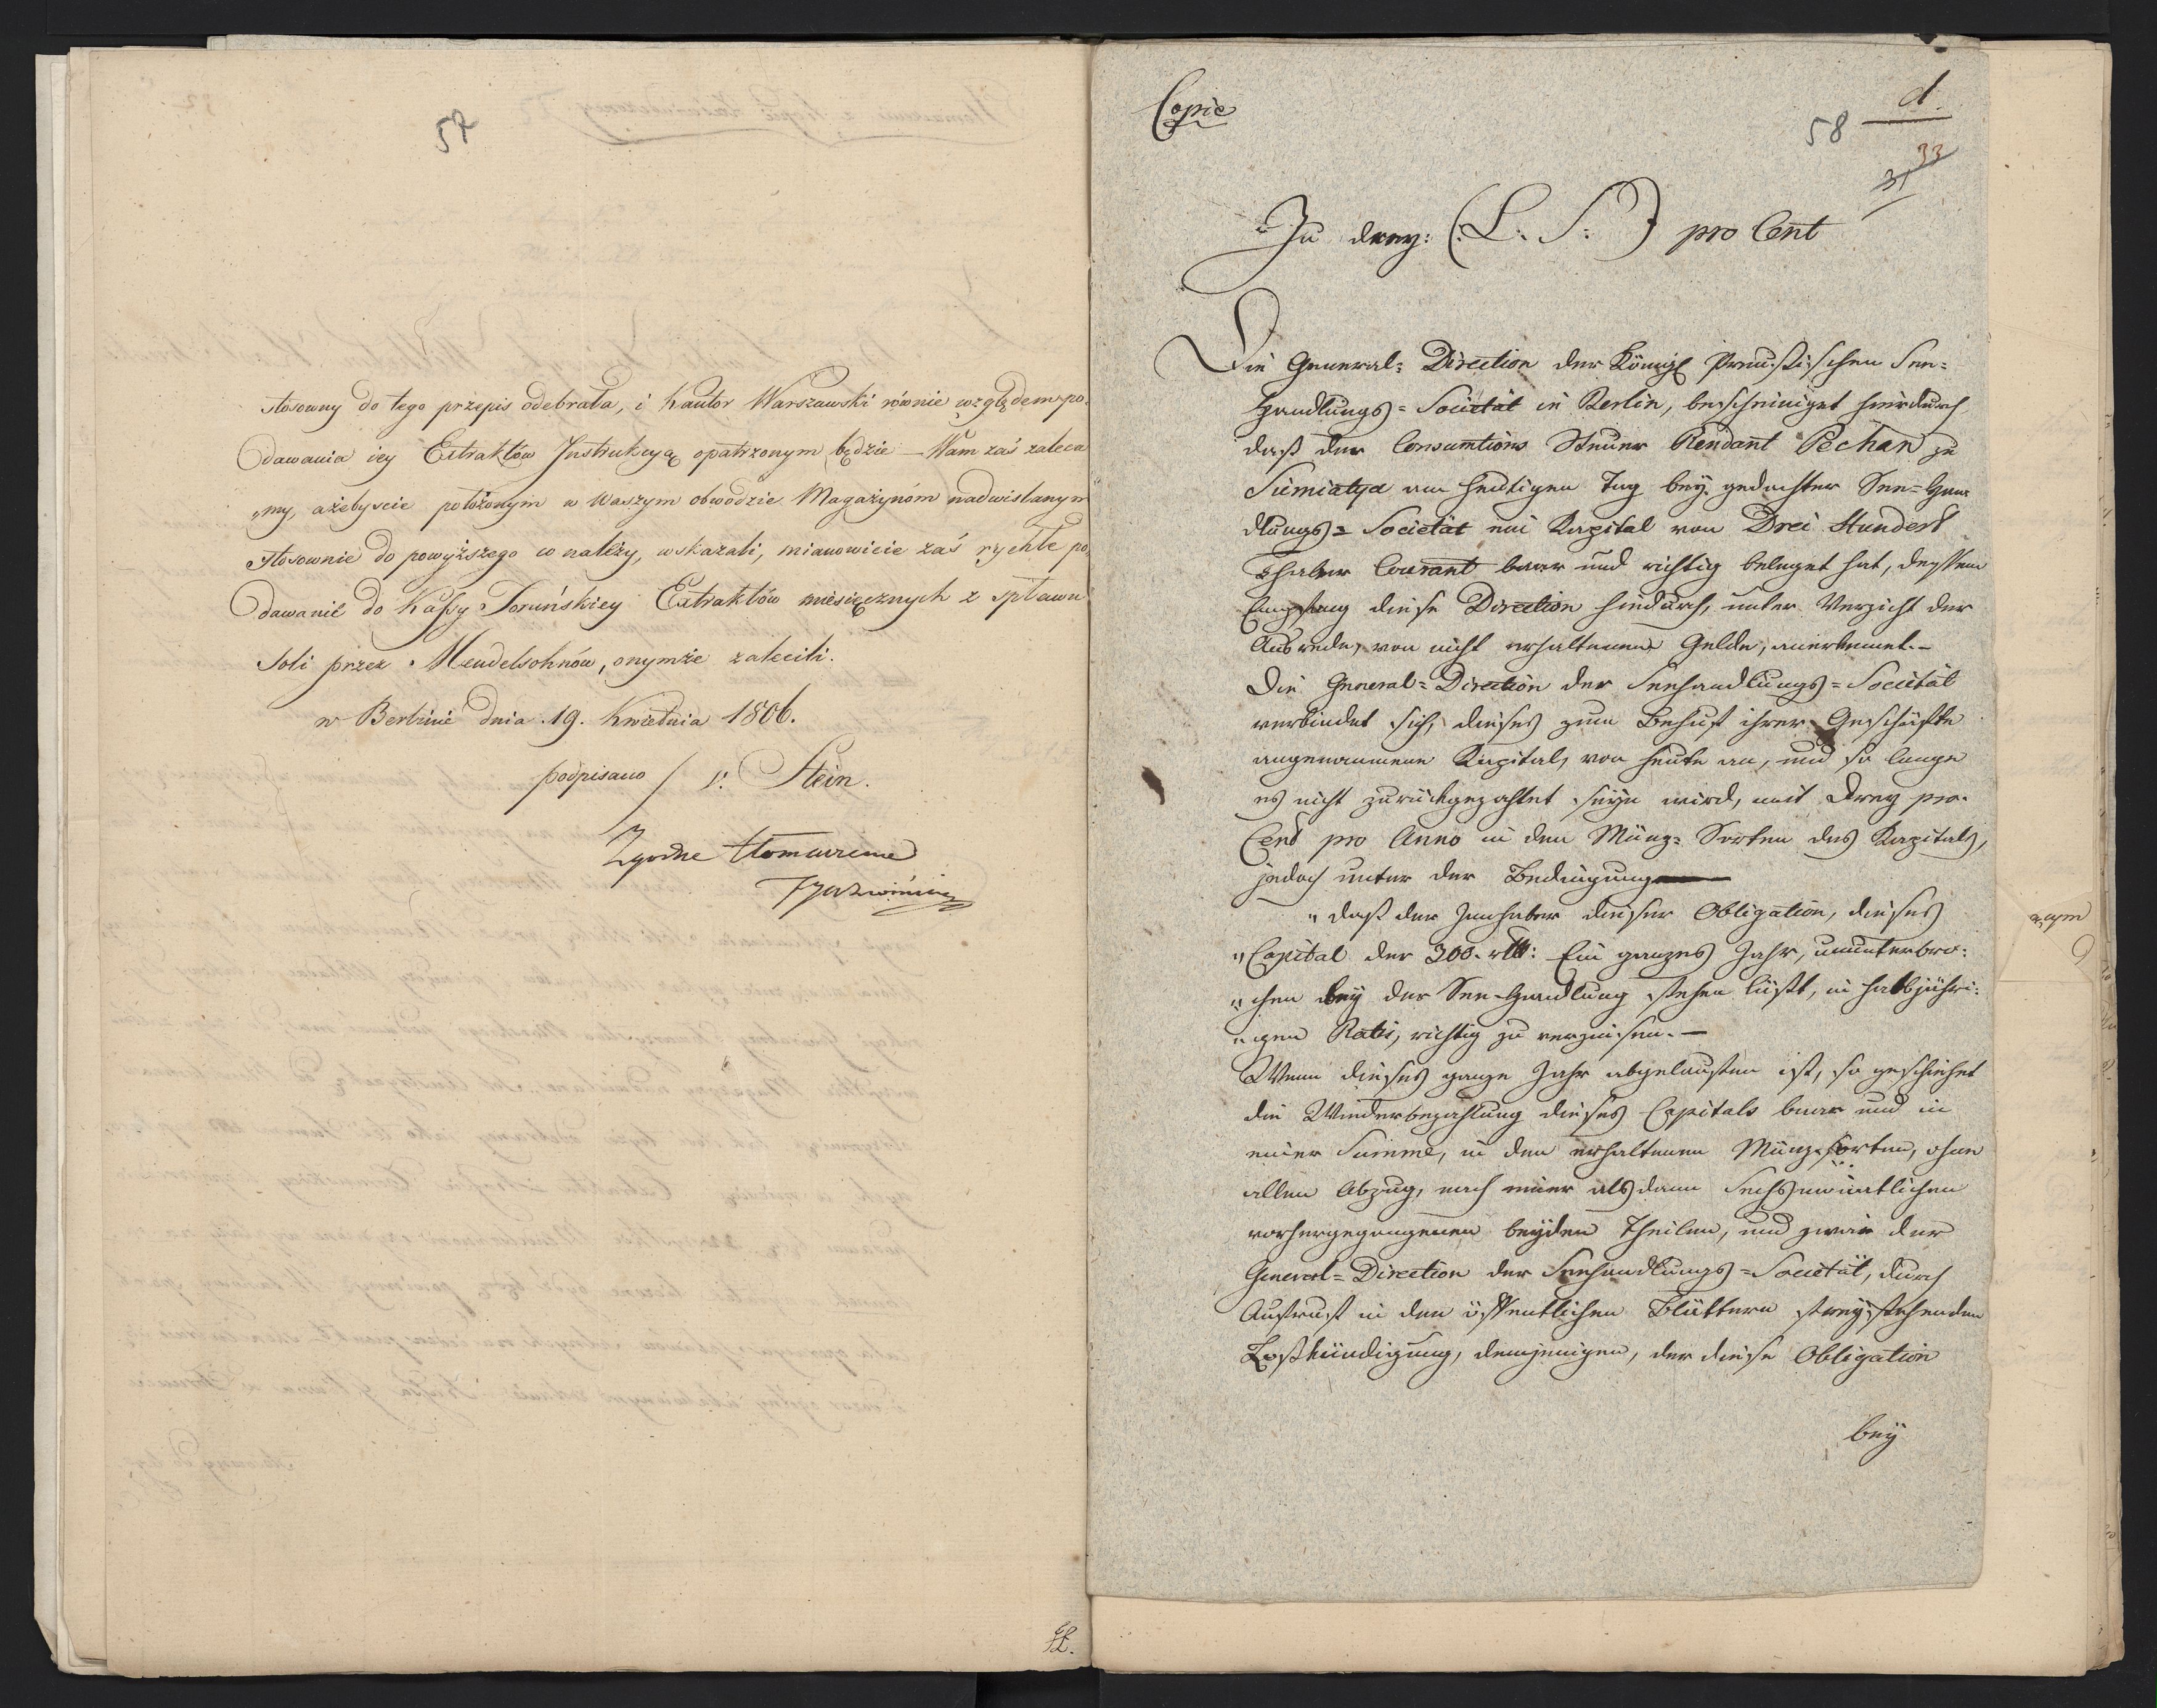 57
stosowny do tego przepis odebrała, i Kantor Warszawski równie względem po„
dawania iey Extraktów Instrukcyą opatrzonym będzie – Wam zaś zaleca
„my, ażebyscie położonym w Waszym obwodzie Magazynom nadwislanym
stosownie do powyższego co należy, wskazali, mianowicie zaś rychłe po„
dawanie do Kassy Toruńskiey Extraktów miesięcznych z spławu
Soli przez Mendelsohnów, onymże zalecili.
w Berlinie dnia 19. Kwietnia 1806.
podpisano / v. Stein.
Zgodne tłomaczenie
Copie
d.
58
33
31
Zu drey: (: L. S: ) pro Cent
Die General-Direction der Königl Preußischen See-
Handlungs-Societät in Berlin, bescheiniget hierdurch
daß der Consumtions Steuer Rendant Pechan zu
Siemiatyce am heutigen Tag bey gedachter See-Han
dlungs-Societät ein Kapital von Drei Hundert
Thaler Courant baar und richtig beleget hat, dessen
Empfang diese Direction hiedurch, unter Verzicht der
Ausrede, von nicht erhaltenem Gelde, anerkennet.-
Die General-Direction der Seehandlungs-Societät
verbindet sich, dieses zum Behuf ihrer Geschäfte
angenommene Kapital, von heute an, und so lange
es nicht zurückgezahlet seyn wird, mit Drey pro
Cent pro Anno in den Münz-Sorten des Kapitals,
jedoch unter der Bedingung
„daß der Innhaber dieser Obligation, dieses
„Capital der 300. rtl: Ein ganzes Jahr, ununterbro-
„chen bey der See-Handlung stehen läßt, in halbjähri-
„gen Ratis, richtig zu verzinsen.-
Wenn dieses ganze Jahr abgelaufen ist, so geschiehet
die Wiederbezahlung dieses Capitals baar und in
einer Summe, in den erhaltenen Münz-Sorten, ohne
allen Abzug, nach einer alsdann Sechsmonatlichen
vorhergegangenen beyden Theilen, und zwar der
General-Direction der Seehandlungs-Societät, durch
Aufruf in den öffentlichen Blättern freystehenden
Loskündigung, demjenigen, der diese Obligation
bey